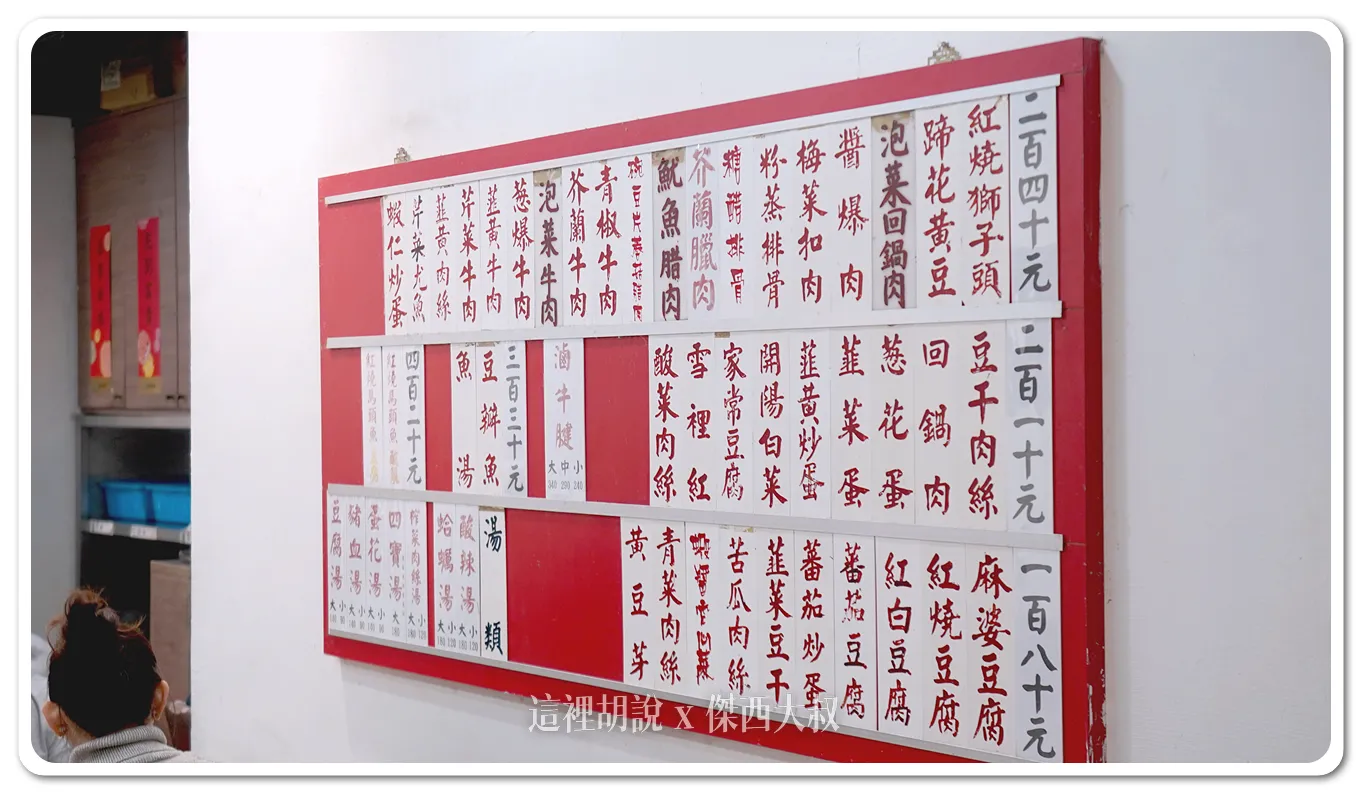 二百四十元
紅燒獅子頭
蹄花黃豆
泡菜回鍋肉
醬爆肉
梅菜扣肉
粉蒸排骨
糖醋排骨
芥蘭臘肉
魷魚腊肉
青椒牛肉
芥蘭牛肉
泡菜牛肉
葱爆牛肉
韮黃牛肉
芹菜牛肉
韮黃肉絲
芹菜尤魚
蝦仁炒蛋
二百一十元
豆干肉絲
回鍋肉
葱花蛋
韮菜蛋
韮黃炒蛋
開陽白菜
家常豆腐
雪裡紅
酸菜肉絲
滷牛腱
大 中 小
340 290 240
三百三十元
豆瓣魚
魚湯
四百二十元
紅燒馬頭魚
紅燒馬頭魚
一百八十元
麻婆豆腐
紅燒豆腐
紅白豆腐
蕃茄豆腐
蕃茄炒蛋
韮菜豆干
苦瓜肉絲
青菜肉絲
黃豆芽
湯類
酸辣湯
大 小
180 120
蛤蠣湯
大 小
180 120
榨菜肉絲湯
大 小
180 120
四寶湯
大
180
蛋花湯
大 小
豬血湯
大 小
豆腐湯
大 小
這裡胡說 x 傑西大叔